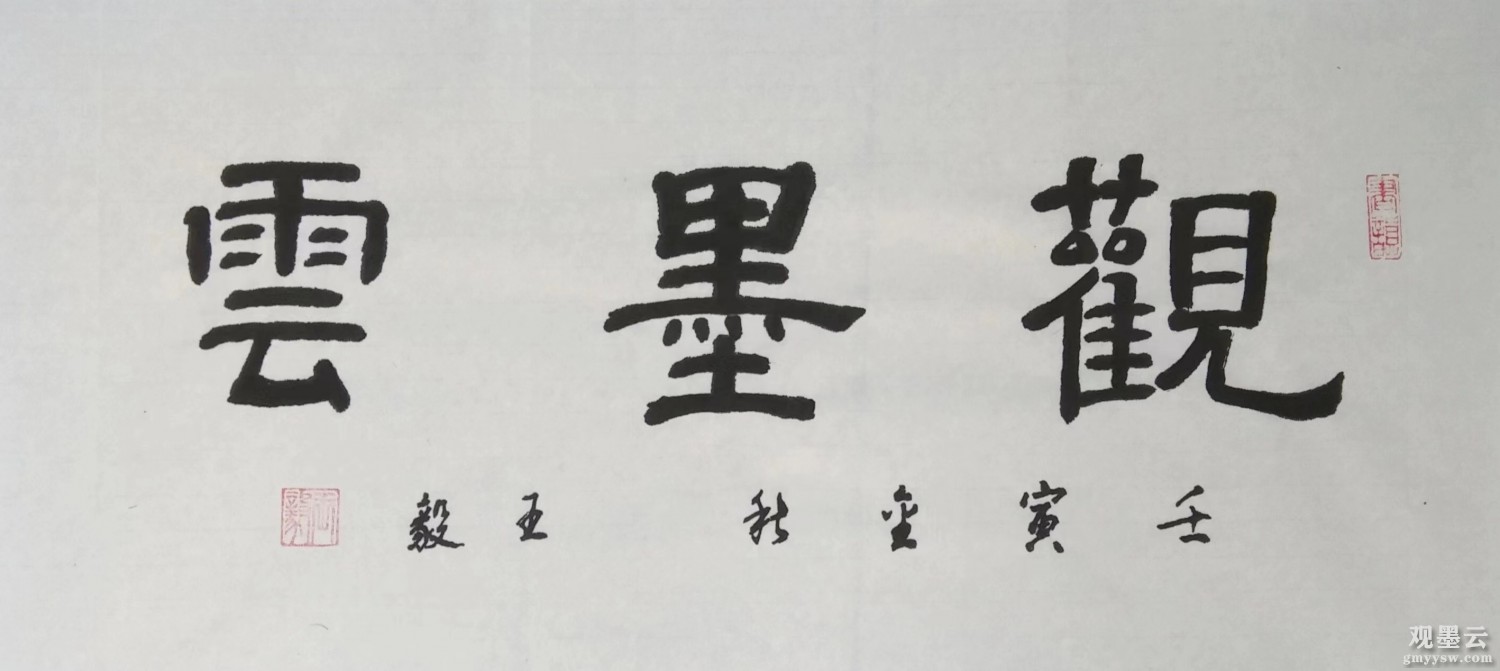 觀墨雲
壬寅金秋 王毅
观墨云
gmyysw.com